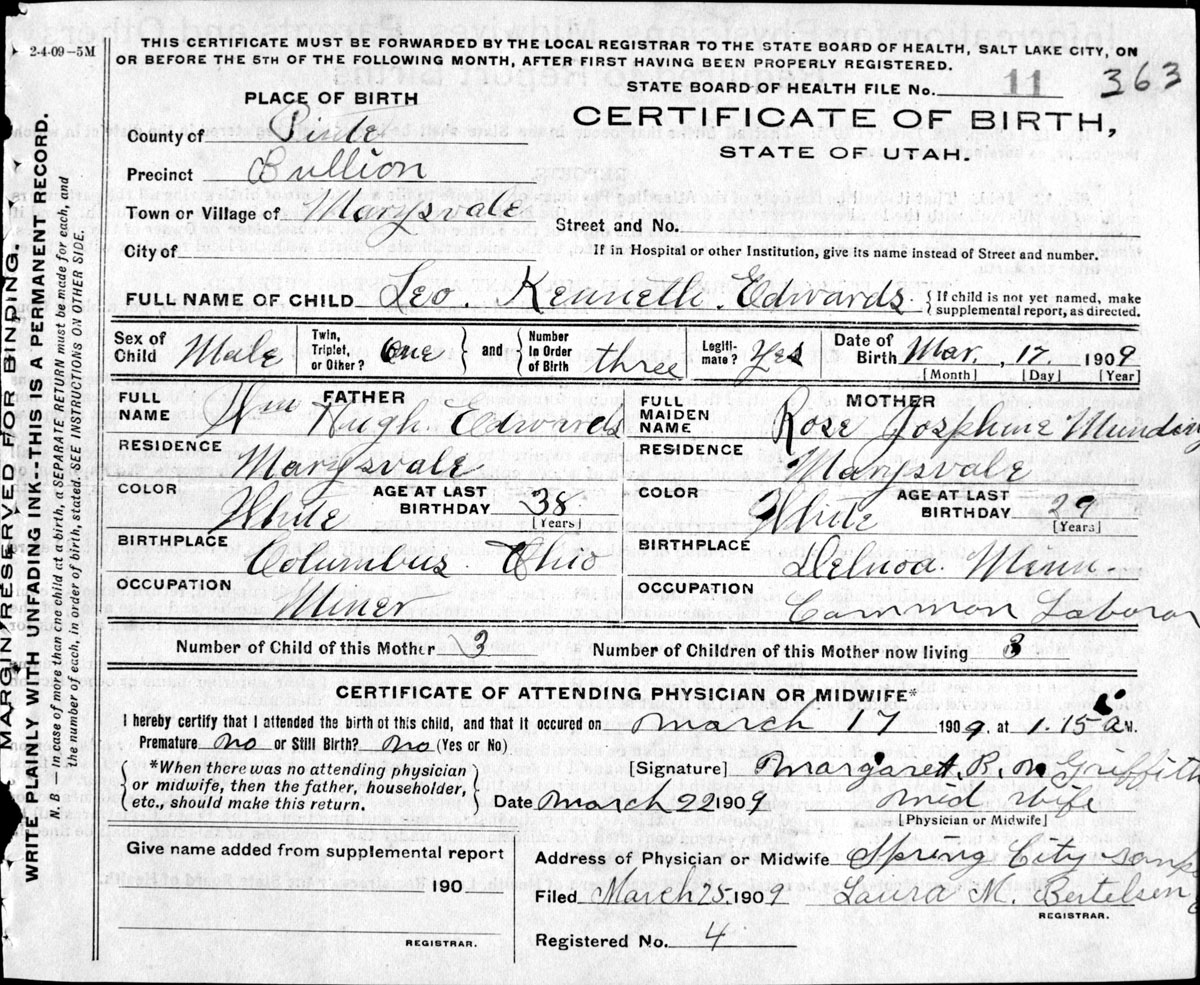 2-4-09—5M
THIS CERTIFICATE MUST BE FORWARDED BY THE LOCAL REGISTRAR TO THE STATE BOARD OF HEALTH, SALT LAKE CITY, ON
OR BEFORE THE 5TH OF THE FOLLOWING MONTH, AFTER FIRST HAVING BEEN PROPERLY REGISTERED.
STATE BOARD OF HEALTH FILE No. 11 363
PLACE OF BIRTH
CERTIFICATE OF BIRTH,
STATE OF UTAH.
County of Piute
Precinct Bullion
Town or Village of Marysvale
Street and No.
City of
If in Hospital or other Institution, give its name instead of Street and number.
FULL NAME OF CHILD Leo. Kenneth. Edwards. {If child is not yet named, make supplemental report, as directed.
Sex of Child Male Twin, Triplet, or Other? One } and { Number in Order of Birth three Legiti-mate? Yes Date of Birth Mar. 17. 1909
[Month] [Day] [Year]
FATHER
FULL NAME Wm Hugh. Edwards
RESIDENCE Marysvale
COLOR White AGE AT LAST BIRTHDAY 38 [Years]
BIRTHPLACE Columbus. Ohio
OCCUPATION Miner
MOTHER
FULL MAIDEN NAME Rose Josphine
RESIDENCE Marysvale
COLOR White AGE AT LAST BIRTHDAY 29 [Years]
BIRTHPLACE Minn.
OCCUPATION Common Laboror
Number of Child of this Mother 3 Number of Children of this Mother now living 3
CERTIFICATE OF ATTENDING PHYSICIAN OR MIDWIFE*
I hereby certify that I attended the birth of this child, and that it occured on March 17 1909. at 1.15 a M.
Premature no or Still Birth? no (Yes or No)
{*When there was no attending physician
or midwife, then the father, householder,
etc., should make this return.}
[Signature] Margaret. R. M Griffith
Date March 22 1909 mid wife
[Physician or Midwife]
Give name added from supplemental report
190
REGISTRAR.
Address of Physician or Midwife Spring City
Filed March 25 1909 Laura M. Bertelsen
REGISTRAR.
Registered No. 4
MARGIN RESERVED FOR BINDING.
WRITE PLAINLY WITH UNFADING INK--THIS IS A PERMANENT RECORD.
N. B — In case of more than one child at a birth, a SEPARATE RETURN must be made for each, and
the number of each, in order of birth, stated. SEE INSTRUCTIONS ON OTHER SIDE.